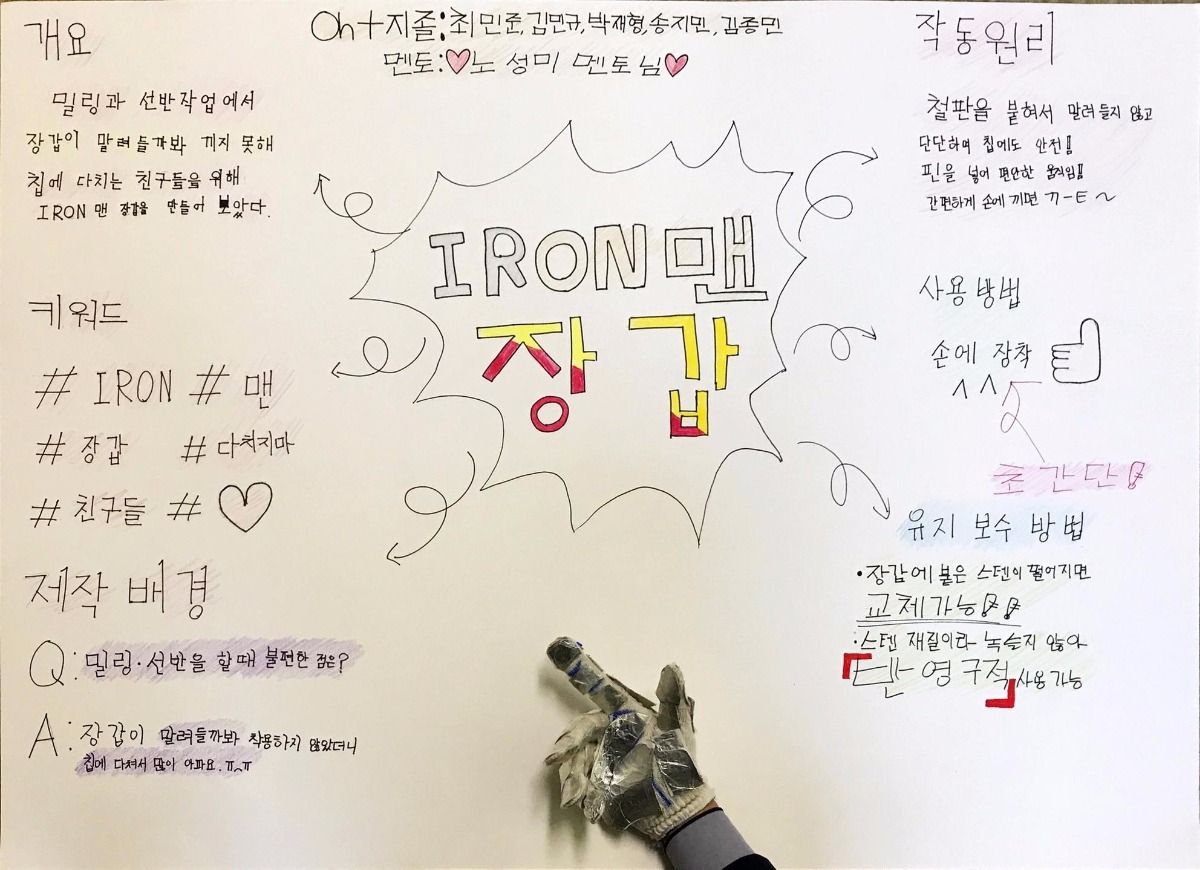 개요
밀링과 선반작업에서
장갑이 말려들까봐 끼지 못해
칩에 다치는 친구들을 위해
IRON맨 장갑을 만들어 보았다.
키워드
# IRON # 맨
# 장갑 # 다치지마
# 친구들 #
제작 배경
Q: 밀링·선반을 할때 불편한 점은?
A: 장갑이 말려들까봐 착용하지 않았더니
칩에 다쳐서 많이 아파요. ㅠ^ㅠ
Oh+지졸: 최민준, 김민규, 박재형, 송지민, 김종민
멘토: 노성미 멘토님
IRON맨
장갑
작동원리
철판을 붙혀서 말려들지 않고
단단하며 칩에도 안전!
핀을 넣어 편안한 움직임!
간편하게 손에 끼면 ㄲ-E ~
사용방법
손에 장착
초간단!
유지 보수 방법
•장갑에 붙은 스텐이 떨어지면
교체가능!!
•스텐 재질이라 녹슬지 않아
「반영구적」사용가능